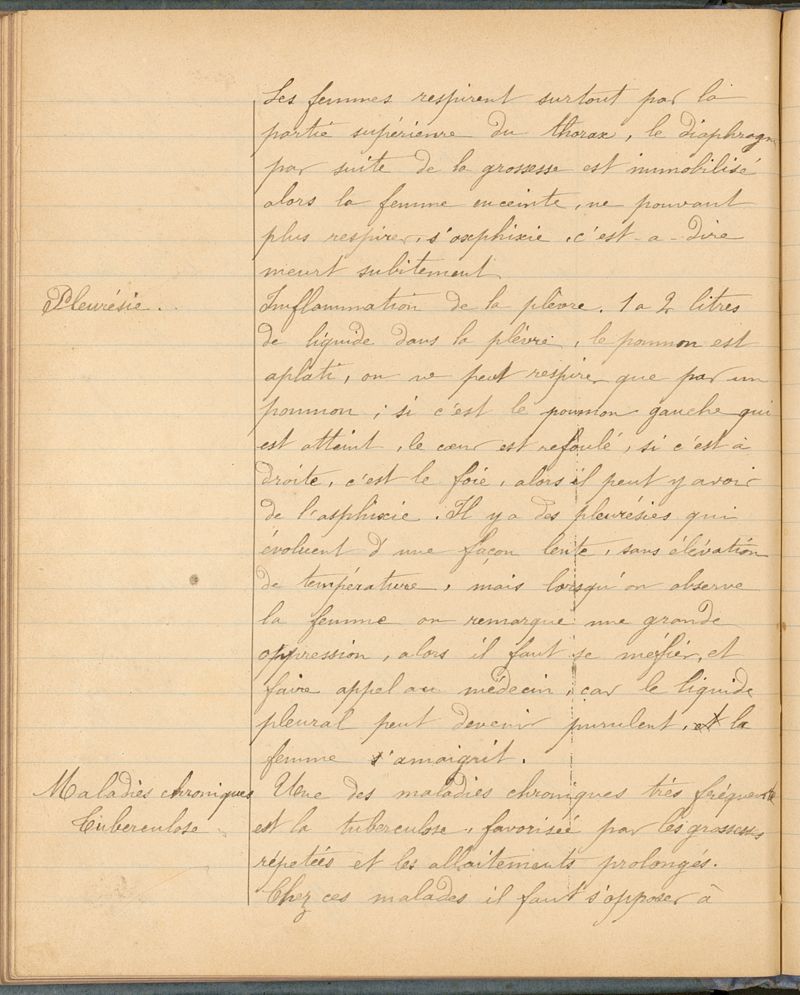 Les femmes respirent surtout par la
partie supérieure du thorax, le diaphragme
par suite de la grossesse est immobilisé
alors la femme enceinte, ne pouvant
plus respirer, s'axphixie, c'est-a-dire
meurt subitement
Pleurésie.
Inflammation de la plèvre. 1 a 2 litres
de liquide dans la plèvre, le poumon est
aplati, on ne peut respirer que par un
poumon ; si c'est le poumon gauche qui
est atteint, le cœur est refoulé, si c'est à
droite, c'est le foie, alors il peut y avoir
de l'asphixie. Il y a des pleurésies qui
évoluent d'une façon lente, sans élévation
de température, mais lorsqu'on observe
la femme on remarque une grande
oppression, alors il faut se méfier, et
faire appel au médecin, car le liquide
pleural peut devenir purulent, et la
femme s'amaigrit.
Maladies chroniques
Une des maladies chroniques très fréquente
Tuberculose
est la tuberculose, favorisée par les grossesses
répetées et les allaitements prolongés.
Chez ces malades il faut s'opposer à